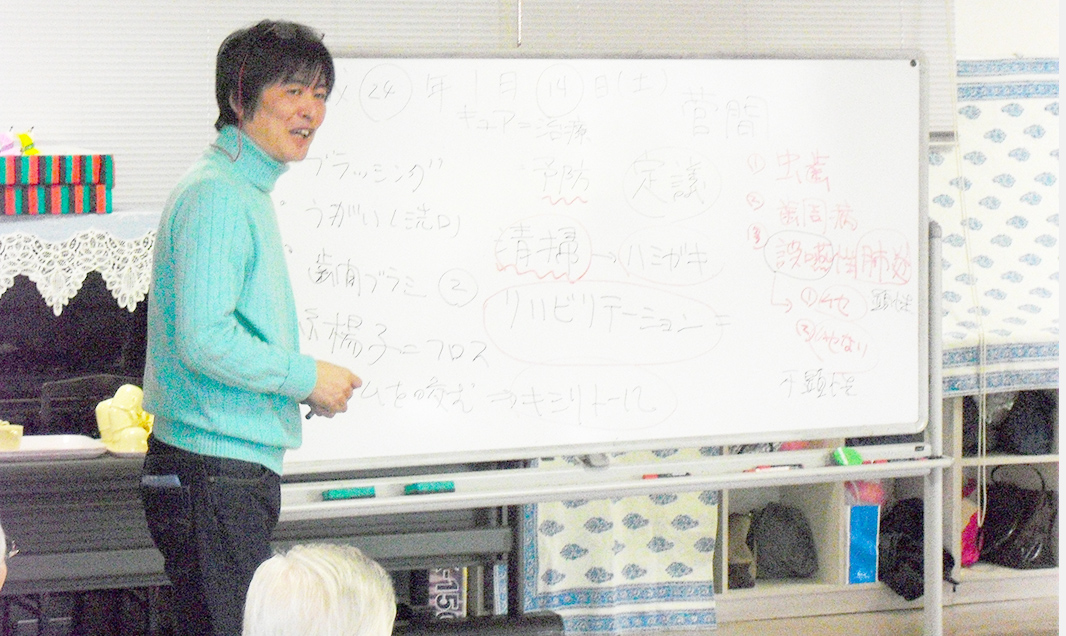 24年1月14日(土)
キュア=治療
ブラッシング
うがい(洗口)
歯間ブラシ ②
楊子=フロス
ムを噛む ⇒キシリトール
予防
定義
清掃→ハミガキ
リハビリテーション=
① 虫歯
② 歯周病
③ 誤嚥性肺炎
→①ムセ 顕性
②ムセない
不顕性
150